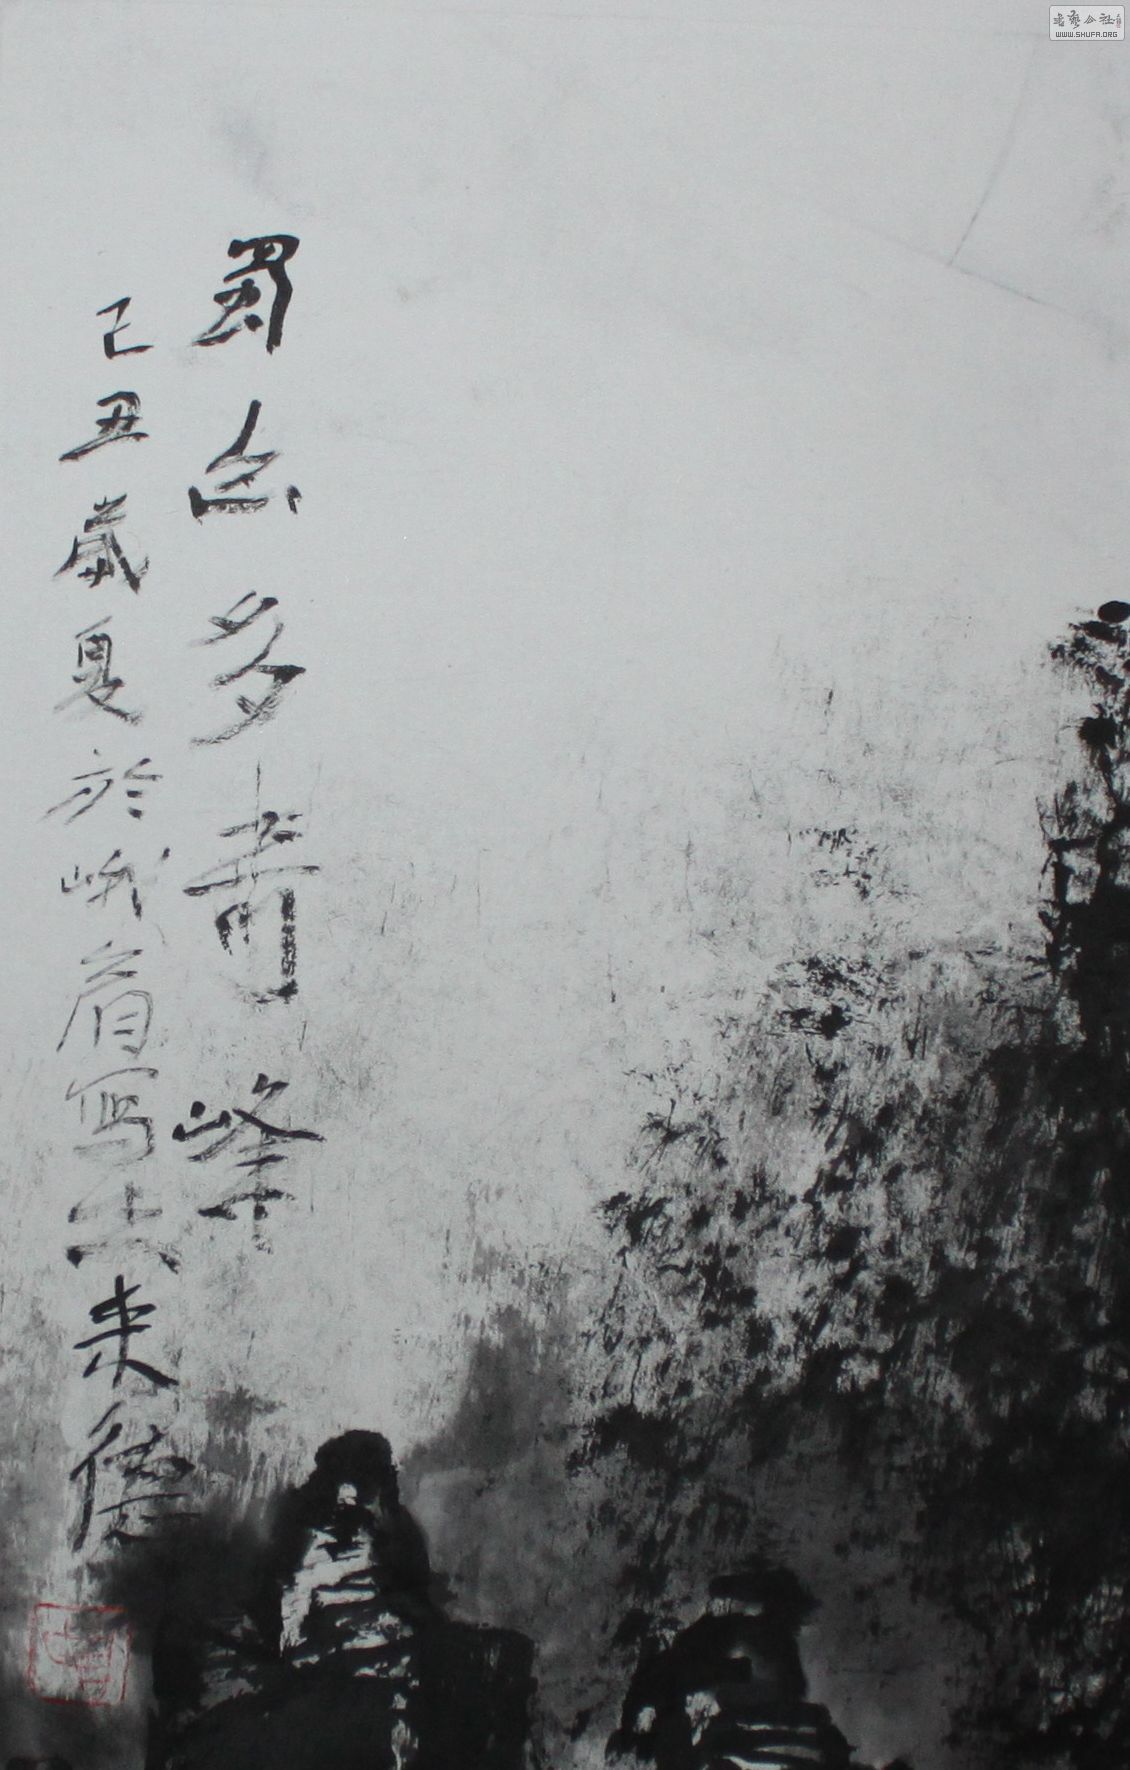 蜀山多奇峰
己丑歲夏於峨眉寫 来德
书艺公社
WWW.SHUFA.ORG